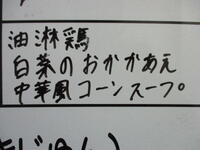 油淋鶏
白菜のおかかあえ
中華風コーンスープ。